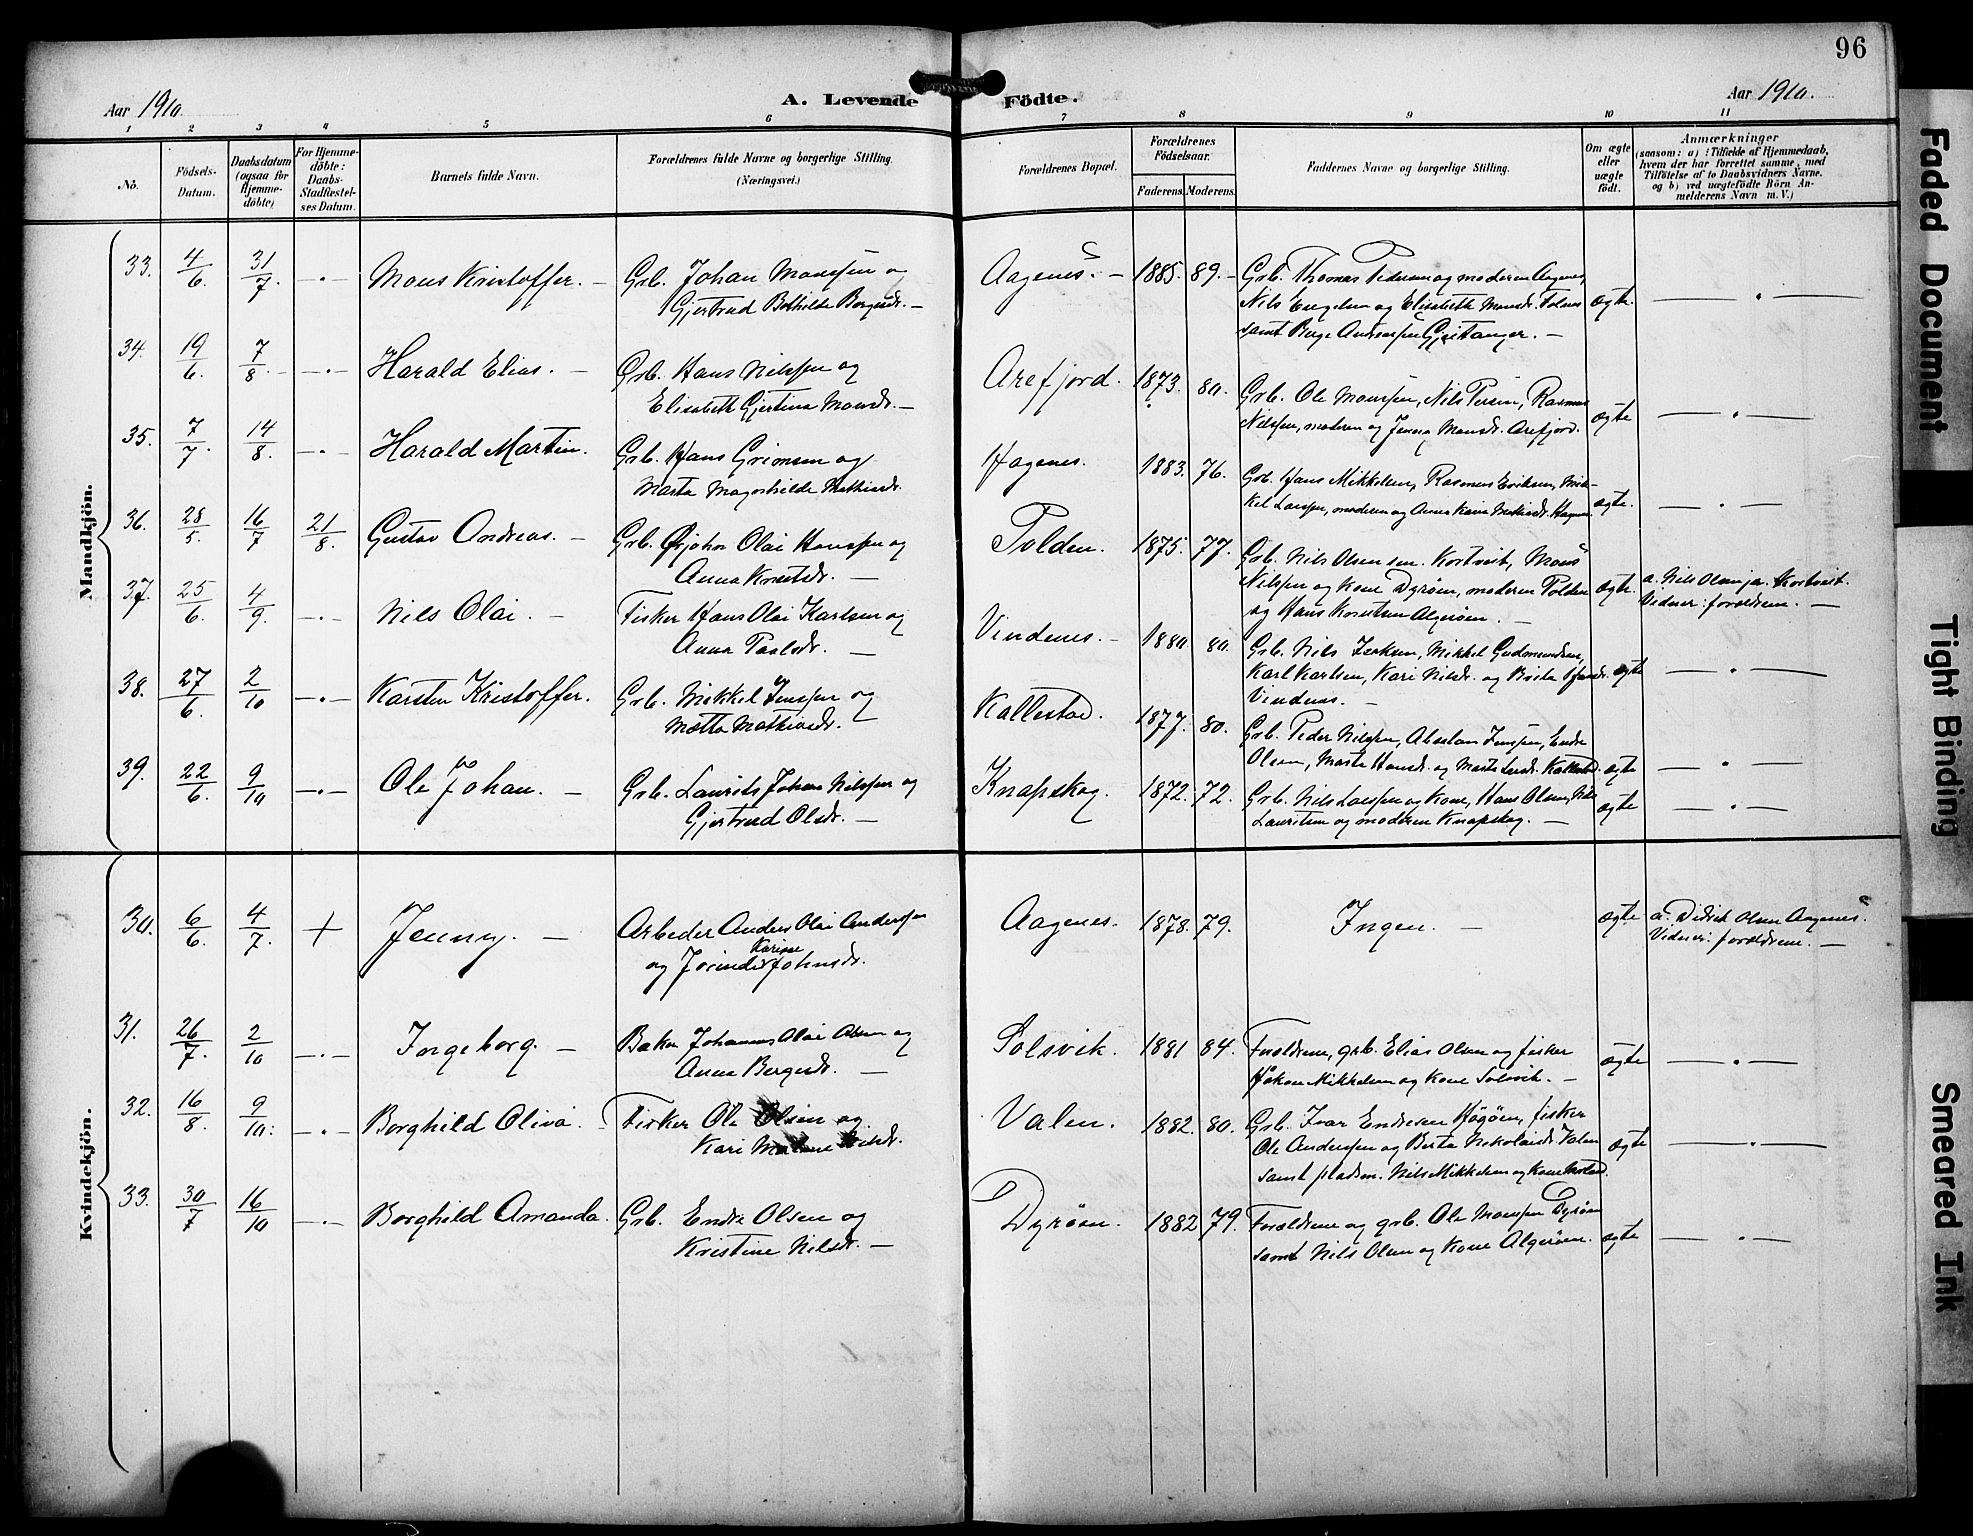 96
Aar 1910.
A. Levende Födte.
Aar 1910.
1 2 3 4 5 6 7 8 9 10 11
No.
Födsels-Datum.
Daabsdatum (ogsaa for Hjemme-döbte)
For Hjemme-döbte: Daabs-Stadfæstel-ses Datum.
Barnets fulde Navn.
Forældrenes fulde Navne og borgerlige Stilling. (Næringsvei.)
Forældrenes Bopæl.
Forældrenes Födselsaar.
Faderens. Moderens.
Faddernes Navne og borgerlige Stilling.
Om ægte eller uægte födt.
Anmærkninger
(saasom: a) i Tilfælde af Hjemmedaab,
hvem der har forrettet samme, med
Tilföielse af to Daabsvidners Navne.
og b) ved uægtefödte Börn An-
melderens Navn m. V.)
Mandkjön.
33. 4/6 31/7 Mons Kristoffer. Grb. Johan Monssen og
Gjertrud Bothilde Børgesdr.
Aagenes. 1885. 89. Grb. Thomas Pedersen og moderen Aagenes,
Nils Engelsen og Elisabeth Monsdr.
samt Børge Andersen Gjeitanger.
ægte
34. 19/6 7/8 Harald Elias. Grb. Hans Nilssen og
Elisabeth Gjertina Monsdr.
Arefjord. 1873. 80. Grb. Ole Monssen, Nils Persen, Rasmus
Nilssen, moderen og Jenny Monsdr. Arefjord.
ægte
35. 7/7 14/8 Harald Martin. Grb. Hans Grimsen og
Marta Magnhilde Mathiasdr.
Hagenes. 1883. 76. Grb. Hans Mikkelsen, Rasmus Eriksen, Mik-
kel Larssen, moderen og Anna Karine Mathiasdr. Hagenes
ægte.
36. 28/5. 16/7 21/8. Gustav Andreas. Grb. Ørjohn Olai Hanssen og
Anna Knutsdr.
Tolden. 1875. 77. Grb. Nils Olsen sen. Kortveit, Mons
Nilssen og Kone Dyrøen, moderen Tolden
og Hans Knutsen Algerøen.
ægte. a. Nils Olsen jr. Kortveit.
Vidner: forældrene.
37. 25/6. 4/9. Nils Olai. Fisker Hans Olai Karlsen og
Anna Paalsdr.
Vindenes. 1880 80. Grb. Nils Isaksen, Mikkel Gudmundsen,
Karl Karlsen, Kari Nilsdr. og Brita
Vindenes.
ægte
38. 27/6. 2/10 Karsten Kristoffer. Grb. Mikkel Jenssen og
Mætta Mathiasdr.
Kallestad. 1877. 80. Grb. Peder Nilssen, Absalon Jenssen, Endre
Olsen, Marta Hansdr. og Marta Larsdr. Kallestad.
ægte
39. 22/6. 9/10 Ole Johan. Grb. Laurits Johan Nilssen og
Gjertrud Olsdr.
Knapskog. 1872. 72. Grb. Nils Larssen og Kone, Hans Olsen, Nils
Lauritsen og moderen Knapskog.
ægte
Kvindekjön.
30. 6/6. 4/7. + Jenny. Arbeder Anders Olai Anderssen
Karine
og Johnsdr.
Aagenes. 1878. 79. Ingen.
ægte a. Didrik Olsen Aagenes.
Vidner: forældrene.
31. 26/7. 2/10 Ingeborg. Baker Johannes Olai Olsen og
Anna Børgesdr.
Solsvik. 1881 84. Forældrene, grb. Elias Olsen og fisker
Håkon Mikkelsen og Kone Solsvik.
ægte
32. 16/8. 9/10. Borghild Oliva. Fisker Ole Olsen og
Kari
Valen. 1882. 80. Grb. Ivar Endresen Høgøen, fisker
Ole Anderssen og Berta Nikolaisdr. Valen
samt pladsm. Nils Mikkelsen og Kone
ægte
33. 30/7 16/10 Borghild Amanda. Grb. Endre Olsen og
Kristine Nilsdr.
Dyrøen. 1882 79. Forældrene og grb. Ole Monssen Dyrøen
samt Nils Olsen og Kone Algerøen.
ægte
Faded Document
Tight Binding
Smeared Ink